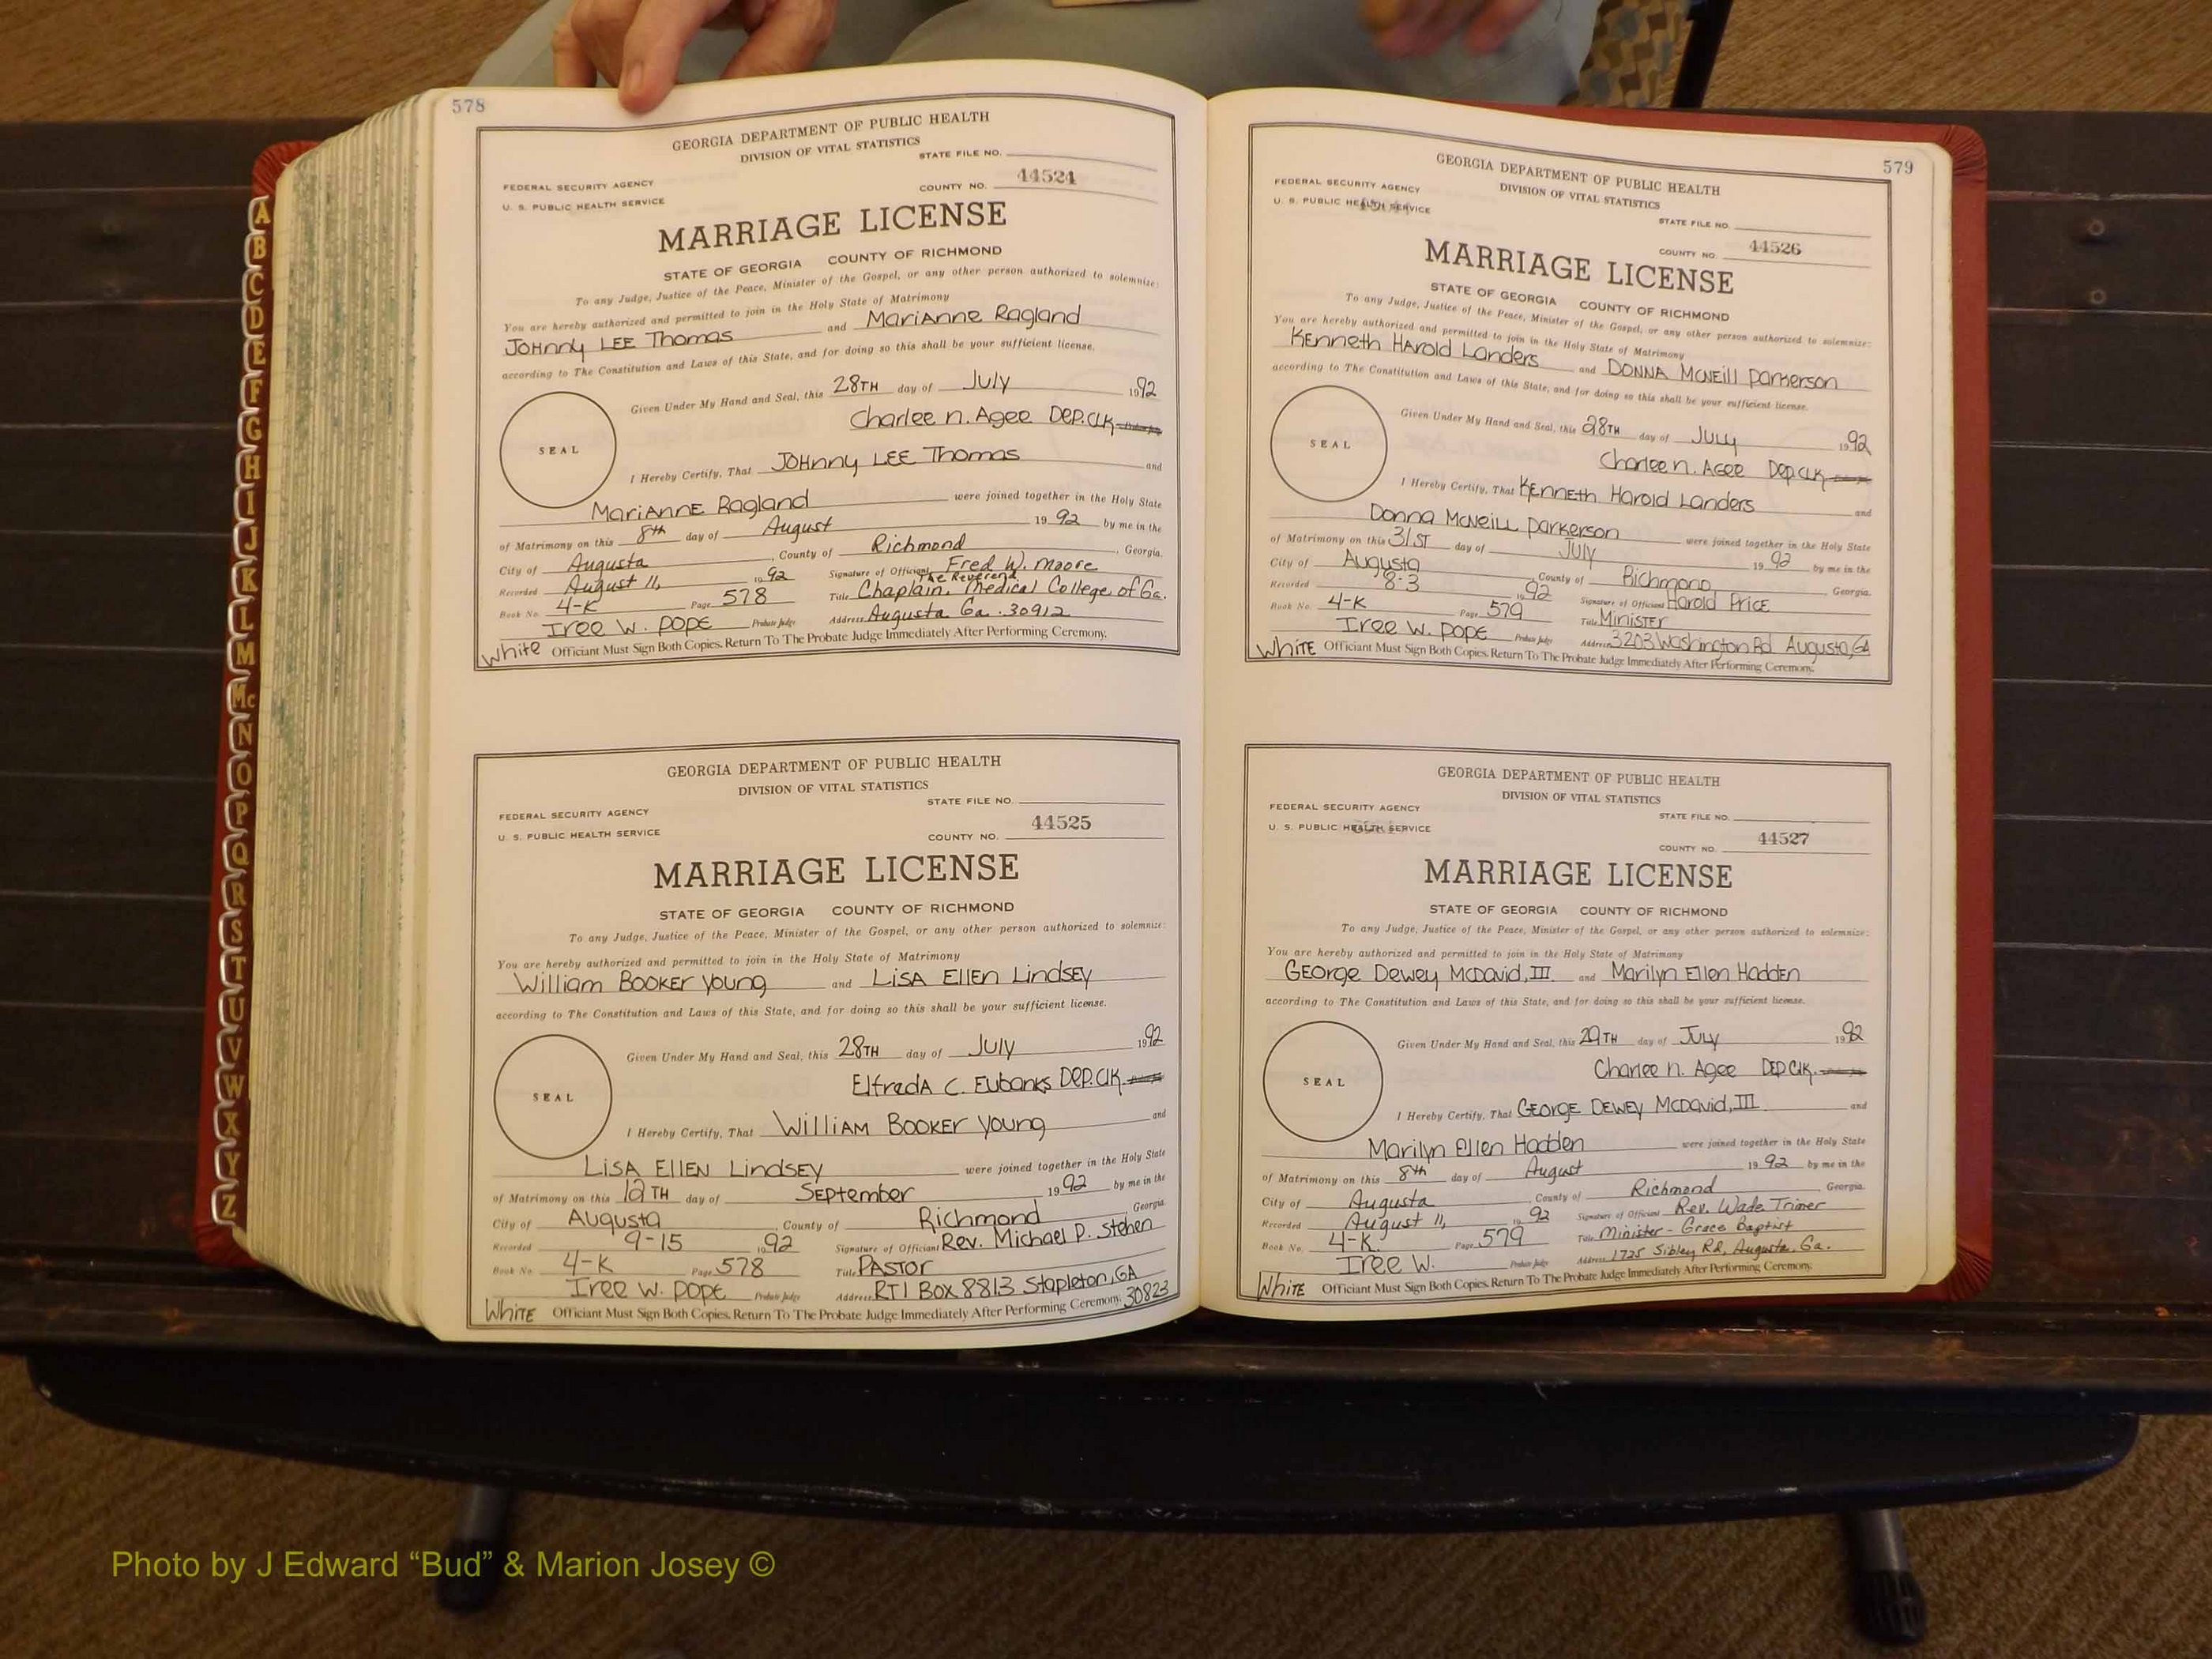 578
GEORGIA DEPARTMENT OF PUBLIC HEALTH
DIVISION OF VITAL STATISTICS
STATE FILE NO.
FEDERAL SECURITY AGENCY
COUNTY NO. 44524
U. S. PUBLIC HEALTH SERVICE
MARRIAGE LICENSE
STATE OF GEORGIA COUNTY OF RICHMOND
To any Judge, Justice of the Peace, Minister of the Gospel, or any other person authorized to solemnize:
You are hereby authorized and permitted to join in the Holy State of Matrimony
JOHnny LEE Thomas and MariAnne Ragland
according to The Constitution and Laws of this State, and for doing so this shall be your sufficient license.
Given Under My Hand and Seal, this 28TH day of July 1992
Charlee n. Agee DEP. CLK
SEAL
I Hereby Certify, That JOHnny LEE Thomas and
MariAnnE Ragland were joined together in the Holy State
of Matrimony on this 8th day of August 19 92 by me in the
City of Augusta, County of Richmond, Georgia.
Recorded August 11, 1992 Signature of Officiant Fred W. Moore
The Reverend
Book No. 4-K Page 578 Title Chaplain, Medical College of Ga.
Iree W. POPE Probate Judge Address Augusta Ga. 30912
White Officiant Must Sign Both Copies. Return To The Probate Judge Immediately After Performing Ceremony.
GEORGIA DEPARTMENT OF PUBLIC HEALTH
DIVISION OF VITAL STATISTICS
STATE FILE NO.
FEDERAL SECURITY AGENCY
COUNTY NO. 44525
U. S. PUBLIC HEALTH SERVICE
MARRIAGE LICENSE
STATE OF GEORGIA COUNTY OF RICHMOND
To any Judge, Justice of the Peace, Minister of the Gospel, or any other person authorized to solemnize:
You are hereby authorized and permitted to join in the Holy State of Matrimony
William BOOKER Young and LISA Ellen Lindsey
according to The Constitution and Laws of this State, and for doing so this shall be your sufficient license.
Given Under My Hand and Seal, this 28TH day of July 1992
ElfredA C. Eubanks DEP. CLK
SEAL
I Hereby Certify, That WilliAM BOOKER Young and
LiSA EllEN LindSEY were joined together in the Holy State
of Matrimony on this 12TH day of SEPtember 19 92 by me in the
City of Augusta, County of Richmond, Georgia.
Recorded 9-15 1992 Signature of Officiant Rev. Michael P. Stehen
Book No. 4-K Page 578 Title PASTOR
Iree W. POPE Probate Judge Address RT1 Box 8813 Stapleton, GA
30823
WhiTE Officiant Must Sign Both Copies. Return To The Probate Judge Immediately After Performing Ceremony.
579
GEORGIA DEPARTMENT OF PUBLIC HEALTH
DIVISION OF VITAL STATISTICS
FEDERAL SECURITY AGENCY
U. S. PUBLIC HEALTH SERVICE
STATE FILE NO.
COUNTY NO. 44526
MARRIAGE LICENSE
STATE OF GEORGIA COUNTY OF RICHMOND
To any Judge, Justice of the Peace, Minister of the Gospel, or any other person authorized to solemnize:
You are hereby authorized and permitted to join in the Holy State of Matrimony
Kenneth Harold Landers and DONNA McNeill Parkerson
according to The Constitution and Laws of this State, and for doing so this shall be your sufficient license.
Given Under My Hand and Seal, this 28TH day of July 1992
Charlee n. Agee Dep CLK
SEAL
I Hereby Certify, That Kenneth Harold Landers and
Donna McNeill Parkerson were joined together in the Holy State
of Matrimony on this 31ST day of July 19 92 by me in the
City of Augusta, County of Richmond, Georgia.
Recorded 8-3 1992 Signature of Officiant Harold Price
Book No. 4-K Page 579 Title Minister
Iree W. POPE Probate Judge Address 3203 Washington Rd Augusta, GA
WhiTE Officiant Must Sign Both Copies. Return To The Probate Judge Immediately After Performing Ceremony.
GEORGIA DEPARTMENT OF PUBLIC HEALTH
DIVISION OF VITAL STATISTICS
FEDERAL SECURITY AGENCY
STATE FILE NO.
U. S. PUBLIC HEALTH SERVICE
COUNTY NO. 44527
MARRIAGE LICENSE
STATE OF GEORGIA COUNTY OF RICHMOND
To any Judge, Justice of the Peace, Minister of the Gospel, or any other person authorized to solemnize:
You are hereby authorized and permitted to join in the Holy State of Matrimony
George Dewey McDavid, III and Marilyn Ellen Hadden
according to The Constitution and Laws of this State, and for doing so this shall be your sufficient license.
Given Under My Hand and Seal, this 29TH day of July 1992
Charlee n. Agee DEP CLK.
SEAL
I Hereby Certify, That GEORGE DEWEY McDavid, III and
Marilyn Ellen Hadden were joined together in the Holy State
of Matrimony on this 8th day of August 19 92 by me in the
City of Augusta, County of Richmond Georgia.
Recorded August 11, 1992 Signature of Officiant Rev. Wade Trimer
Book No. 4-K Page 579 Title Minister - Grace Baptist
Iree W. Probate Judge Address 1725 Sibley Rd, Augusta, Ga.
WhiTE Officiant Must Sign Both Copies. Return To The Probate Judge Immediately After Performing Ceremony.
A
B
C
D
E
F
G
H
I
J
K
L
M
Mc
N
O
P
Q
R
S
T
U
V
W
X
Y
Z
Photo by J Edward “Bud” & Marion Josey ©